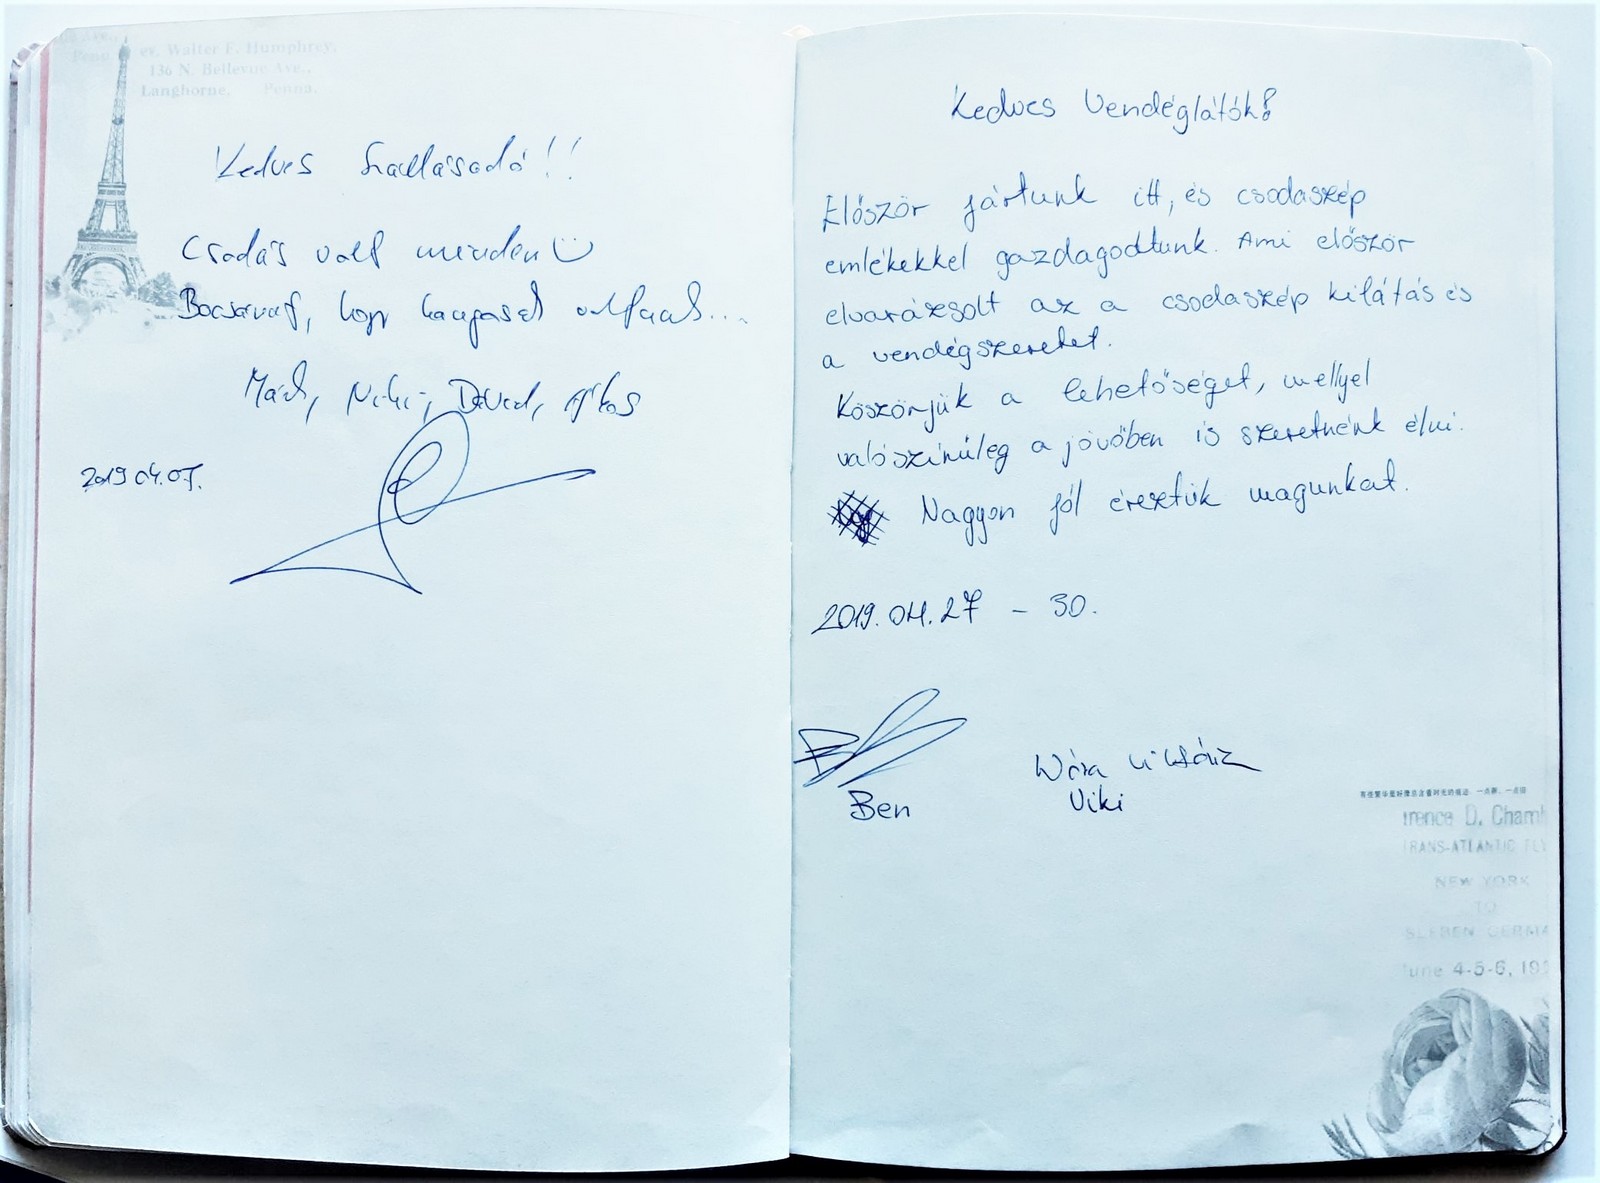 ev. Walter F. Humphrey,
136 N. Bellevue Ave.,
Langhorne, Penna.
Kedves Szállásadó!!
Csodás volt minden
Bocsánat, hogy hangosak voltunk...
Márk, Niki, Dávid, Ákos
2019 04.07.
Kedves Vendéglátók!
Először jártunk itt, és csodaszép
emlékekkel gazdagodtunk. Ami először
elvarázsolt az a csodaszép kilátás és
a vendégszeretet.
Köszönjük a lehetőséget, mellyel
valószínűleg a jövőben is szeretnénk élni.
Nagyon jól éreztük magunkat.
2019.04.27 - 30.
Ben
Viki
rence D. Chamb
TRANS-ATLANTIC FLY
NEW YORK
TO
SLEBEN GERMA
June 4-5-6, 19